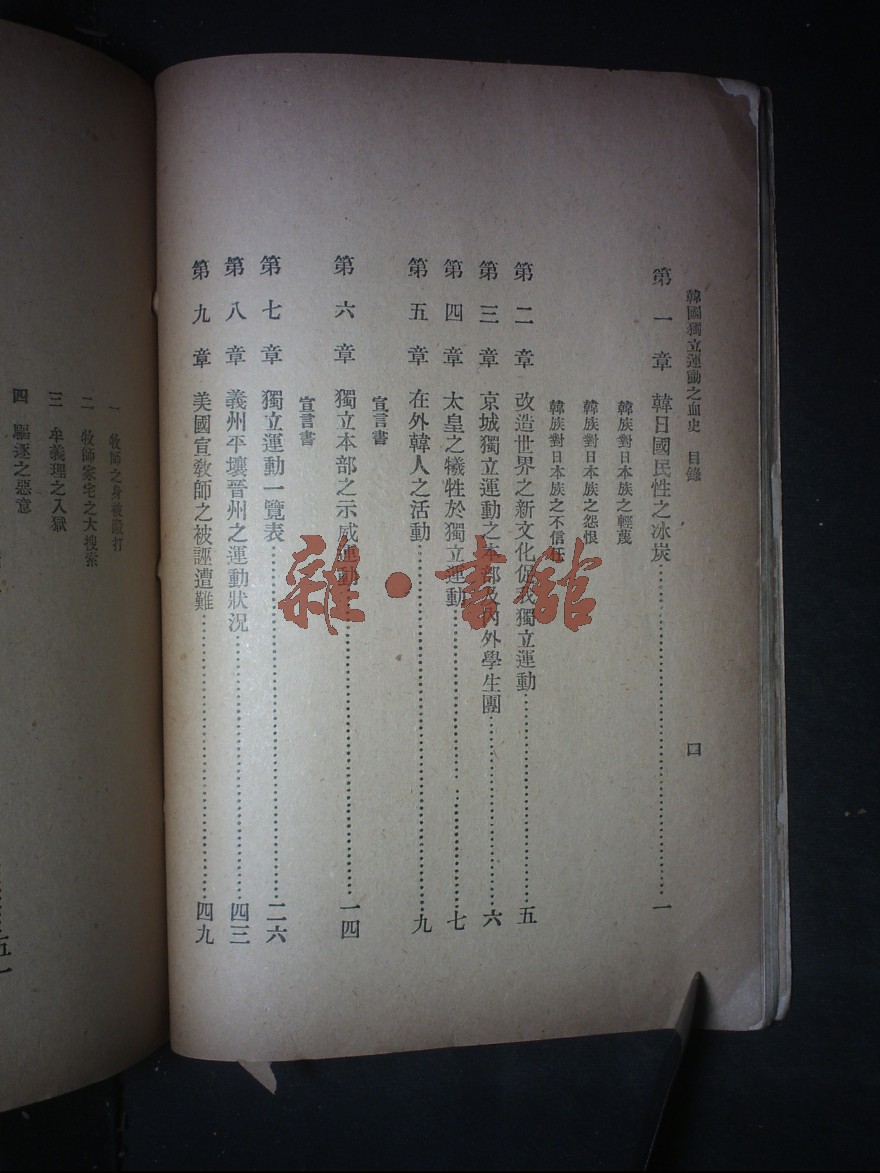 韓國獨立運動之血史 目錄 口
第一章 韓日國民性之冰炭……一
韓族對日本族之輕蔑
韓族對日本族之怨恨
韓族對日本族之不信任
第二章 改造世界之新文化促我獨立運動……五
第三章 京城獨立運動之本部及內外學生團……六
第四章 太皇之犧牲於獨立運動……七
第五章 在外韓人之活動……九
宣言書
第六章 獨立本部之示威運動……一四
宣言書
第七章 獨立運動一覽表……二六
第八章 義州平壤晉州之運動狀況……四三
第九章 美國宣敎師之被誣遭難……四九
一 牧師之身被毆打
二 牧師家宅之大搜索
三 牟義理之入獄
四 驅逐之惡意
雜·書館